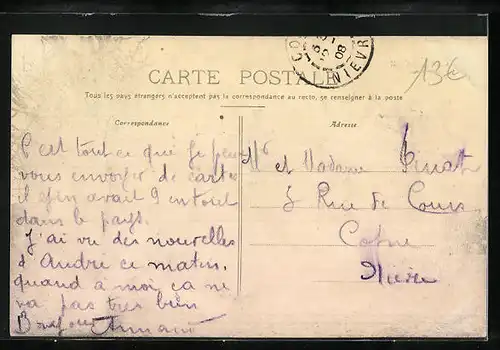 CARTE POSTALE
Tous les pays étrangers n'acceptent pas la correspondance au recto, se renseigner à la poste
Correspondance
Adresse
13€
NIEVR
08
C'est tout ce que je peu
vous envoyer de cartes
il y en avait 9 en tout
dans le pays.
J'ai vu des nouvelles
d'André ce matin,
quand à moi ça ne
va pas très bien
Bonjour Armand
Mr et Madame
5 Rue de Cours
Cosne
Nièvre